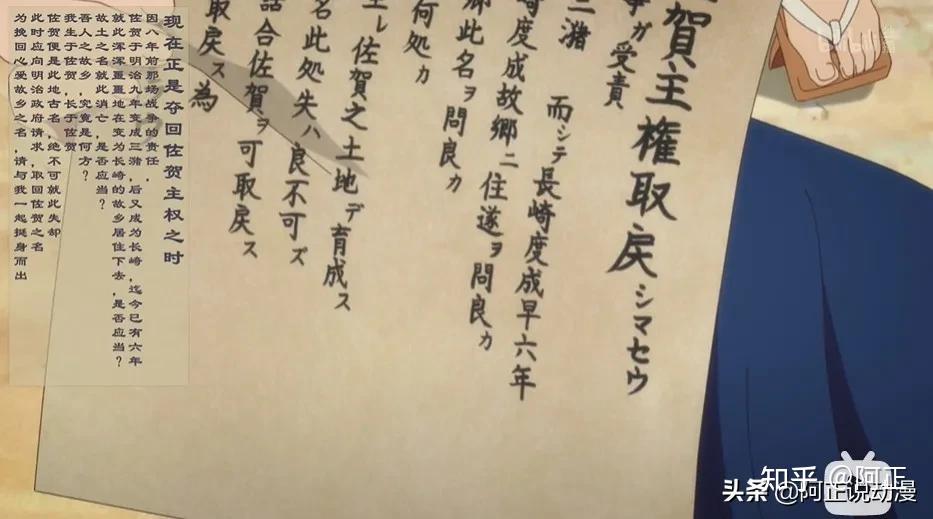 賀主権取戻シマセウ
事ガ受責
潴 而シテ長崎度成早六年
崎度成故郷ニ住遂ヲ問良カ
郷此名ヲ問良カ
何処カ
生レ佐賀之土地デ育成ス
名此処失ハ良不可ズ
話合佐賀ヲ可取戻ス
取戻ス為
现在正是夺回佐贺主权之时
因八年前那场战争的责任
佐贺于明治九年变成三潴,后又成为长崎,迄今已有六年
就此浑浑噩噩地在变为长崎的故乡居住下去,是否应当?
故土之名就此消亡,是否应当?
吾人之故乡,究竟是何方?
我生于佐贺,长于佐贺
佐贺便是此地古名,绝不可就此失却
此时应向明治政府请求,取回佐贺之名
为挽回心爱故乡之名,请与我一起挺身而出
bilibili
知乎 @阿正
头条 @阿正说动漫